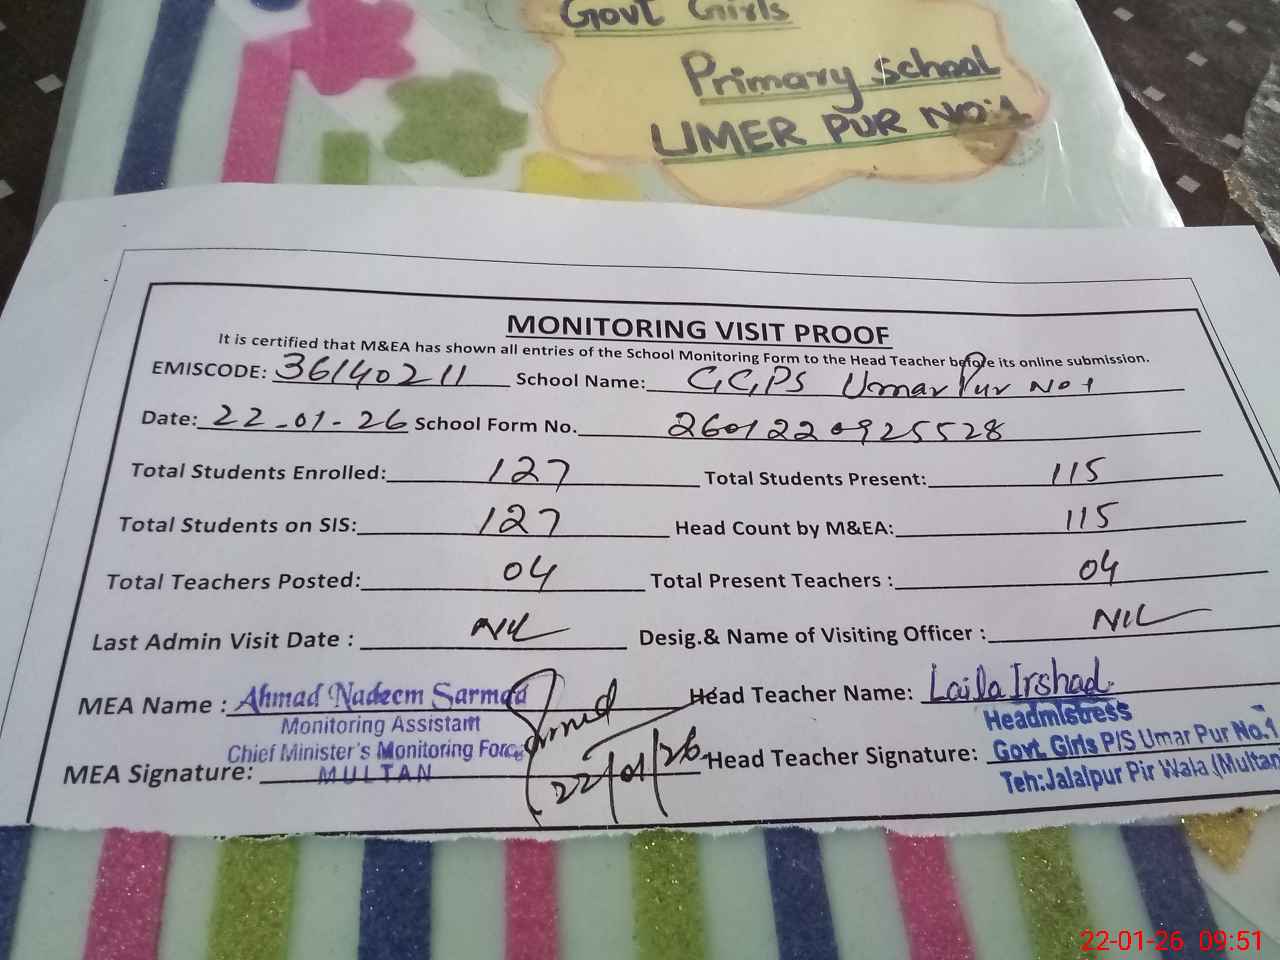 Govt Girls
Primary School
UMER PUR NO:1
MONITORING VISIT PROOF
It is certified that M&EA has shown all entries of the School Monitoring Form to the Head Teacher before its online submission.
EMISCODE: 36140211 School Name: GGPS Umar Pur No 1
Date: 22-01-26 School Form No. 2601220925528
Total Students Enrolled: 127 Total Students Present: 115
Total Students on SIS: 127 Head Count by M&EA: 115
Total Teachers Posted: 04 Total Present Teachers : 04
Last Admin Visit Date : NIL Desig.& Name of Visiting Officer : NIL
MEA Name : Ahmad Nadeem Sarmad Head Teacher Name: Laila Irshad
Monitoring Assistant
Chief Minister's Monitoring Force
MULTAN
MEA Signature: 22/01/26 Head Teacher Signature:
Headmistress
Govt. Girls P/S Umar Pur No.1
Teh:Jalalpur Pir Wala (Multan
22-01-26 09:51